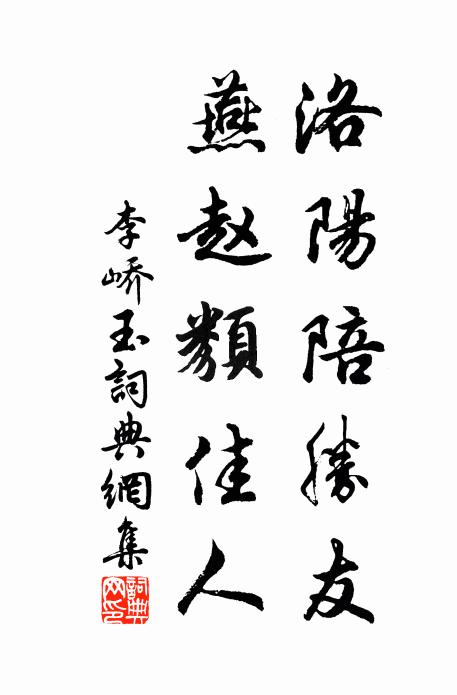 洛陽陪勝友
燕赵類佳人
李峤玉詞典網集
詞典网印